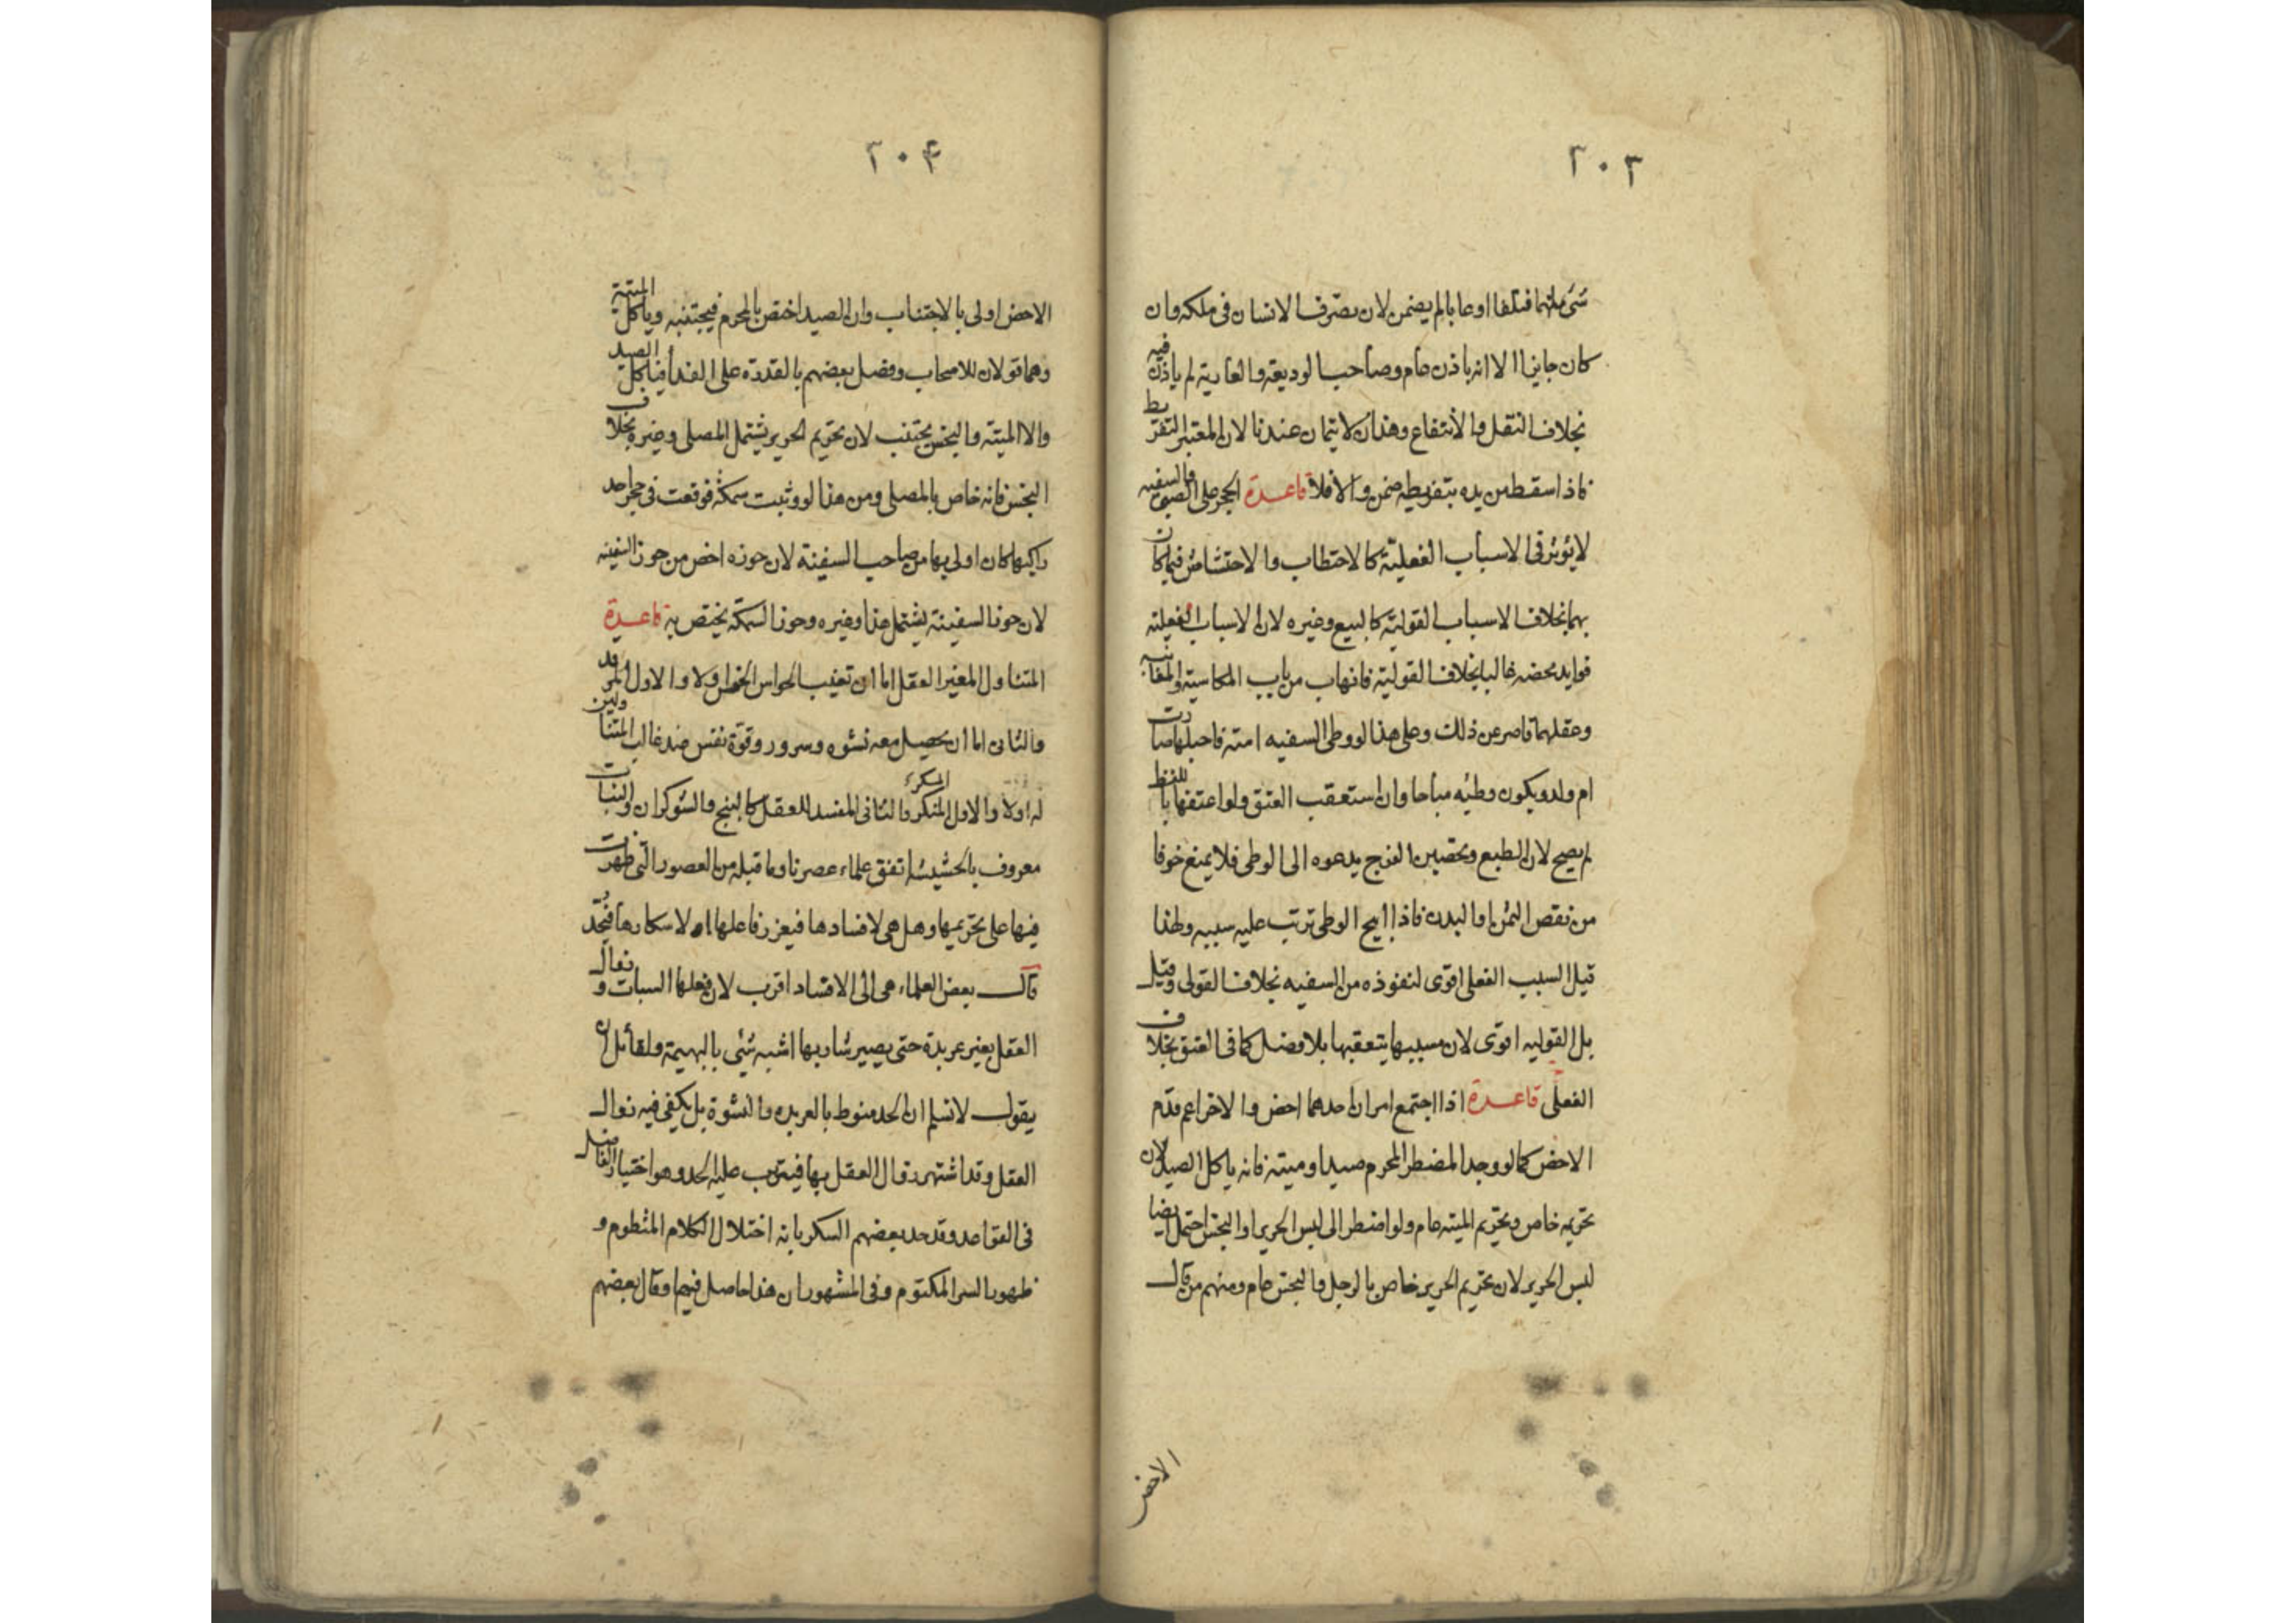 ٢٠٣
شئ منهما فتلفا اوعابا لم يضمن لان تصرف الانسان فى ملكه وان
كان جانيا الا انه باذن عام وصاحب الوديعة والعارية لم ياذن فيه
بخلاف النقل والانتفاع وهذان لا يتمان عندنا لان المعتبر التفريط
فاذا سقط من يده بتفريطه ضمن والا فلا قاعدة الحجر على الصبى والسفيه
لا يؤثر فى الاسباب الفعلية كالاحتطاب والاحتشاش فيملكان
بهما بخلاف الاسباب القولية كالبيع وغيره لان الاسباب الفعلية
فوايد محضه غالبا بخلاف القولية فانها من باب المكاسبة والمغابنه
وعقلهما قاصر عن ذلك وعلى هذا لو وطى السفيه امته فاحبلها صارت
ام ولد ويكون وطئه مباحا وان استعقب العتق ولو اعتقها باللفظ
لم يصح لان الطبع وتحصين الفرج يدعوه الى الوطى فلا يمنع خوفا
من نقص الثمن او البدن فاذا ابيح الوطى ترتب عليه سببه ولهذا
قيل السبب الفعلى اقوى لنفوذه من السفيه بخلاف القولى وقيل
بل القوليه اقوى لان مسببها يتعقبها بلا فصل كما فى العتق بخلاف
الفعلى قاعدة اذا اجتمع امران احدهما اخص والاخر اعم قدم
الاخص كما لو وجد المضطر المحرم صيدا وميتة فانه ياكل الصيد لان
تحريمه خاص وتحريم الميته عام ولو اضطر الى لبس الحرير او النجس احتمل ايضا
لبس الحرير لان تحريم الحرير خاص بالرجل والنجس عام ومنهم من قال
الاخص
٢٠۴
الاخص اولى بالاجتناب وان الصيد اختص بالمحرم فيجتنبه وياكل الميتة
وهما قولان للاصحاب وفصل بعضهم بالقدرة على الفداء فياكل الصيد
والا الميتة والنجس يجتنب لان تحريم الحرير يشتمل المصلى وغيره بخلاف
النجس فانه خاص بالمصلى ومن هذا لو وثبت سمكة فوقعت فى حجر احد
راكبها كان اولى بها من صاحب السفينة لان حوزه اخص من حوز السفينه
لان حوز السفينة يشتمل هذا وغيره وحوز السمكة يختص به قاعدة
المتناول المغير العقل اما ان تغيب الحواس الخمس اولا والاول المرقد
والثانى اما ان يحصل معه نشوه وسرور وقوة نفس عند غالب المتناولين
له اولا والاول المنكر المسكر والثانى المفسد للعقل كالبنج والشوكران والنبات
معروف بالحشيشة اتفق علماء عصرنا وما قبله من العصور التى ظهرت
فيها على تحريمها وهل هى لافسادها فيعزر فاعلها او لاسكارها فيحد
قال بعض العلماء هى الى الافساد اقرب لان فعلها السبات وزوال
العقل بغير عربدة حتى يصير شاربها اشبه شئى بالبهيمة ولقائل ان
يقول لا نسلم ان الحد منوط بالعربده والنشوة بل يكفى فيه زوال
العقل وقد اشتهر زوال العقل بها فيترتب عليه الحد وهو اختيار الفاضل
فى القواعد وقد حد بعضهم السكر بانه اختلال الكلام المنظوم و
ظهور السر المكتوم وفى المشهور ان هذا حاصل فيها وقال بعضهم